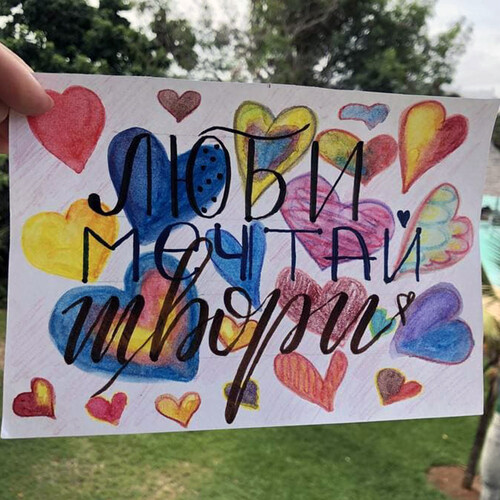 ЛЮБИ
МЕЧТАЙ
твори